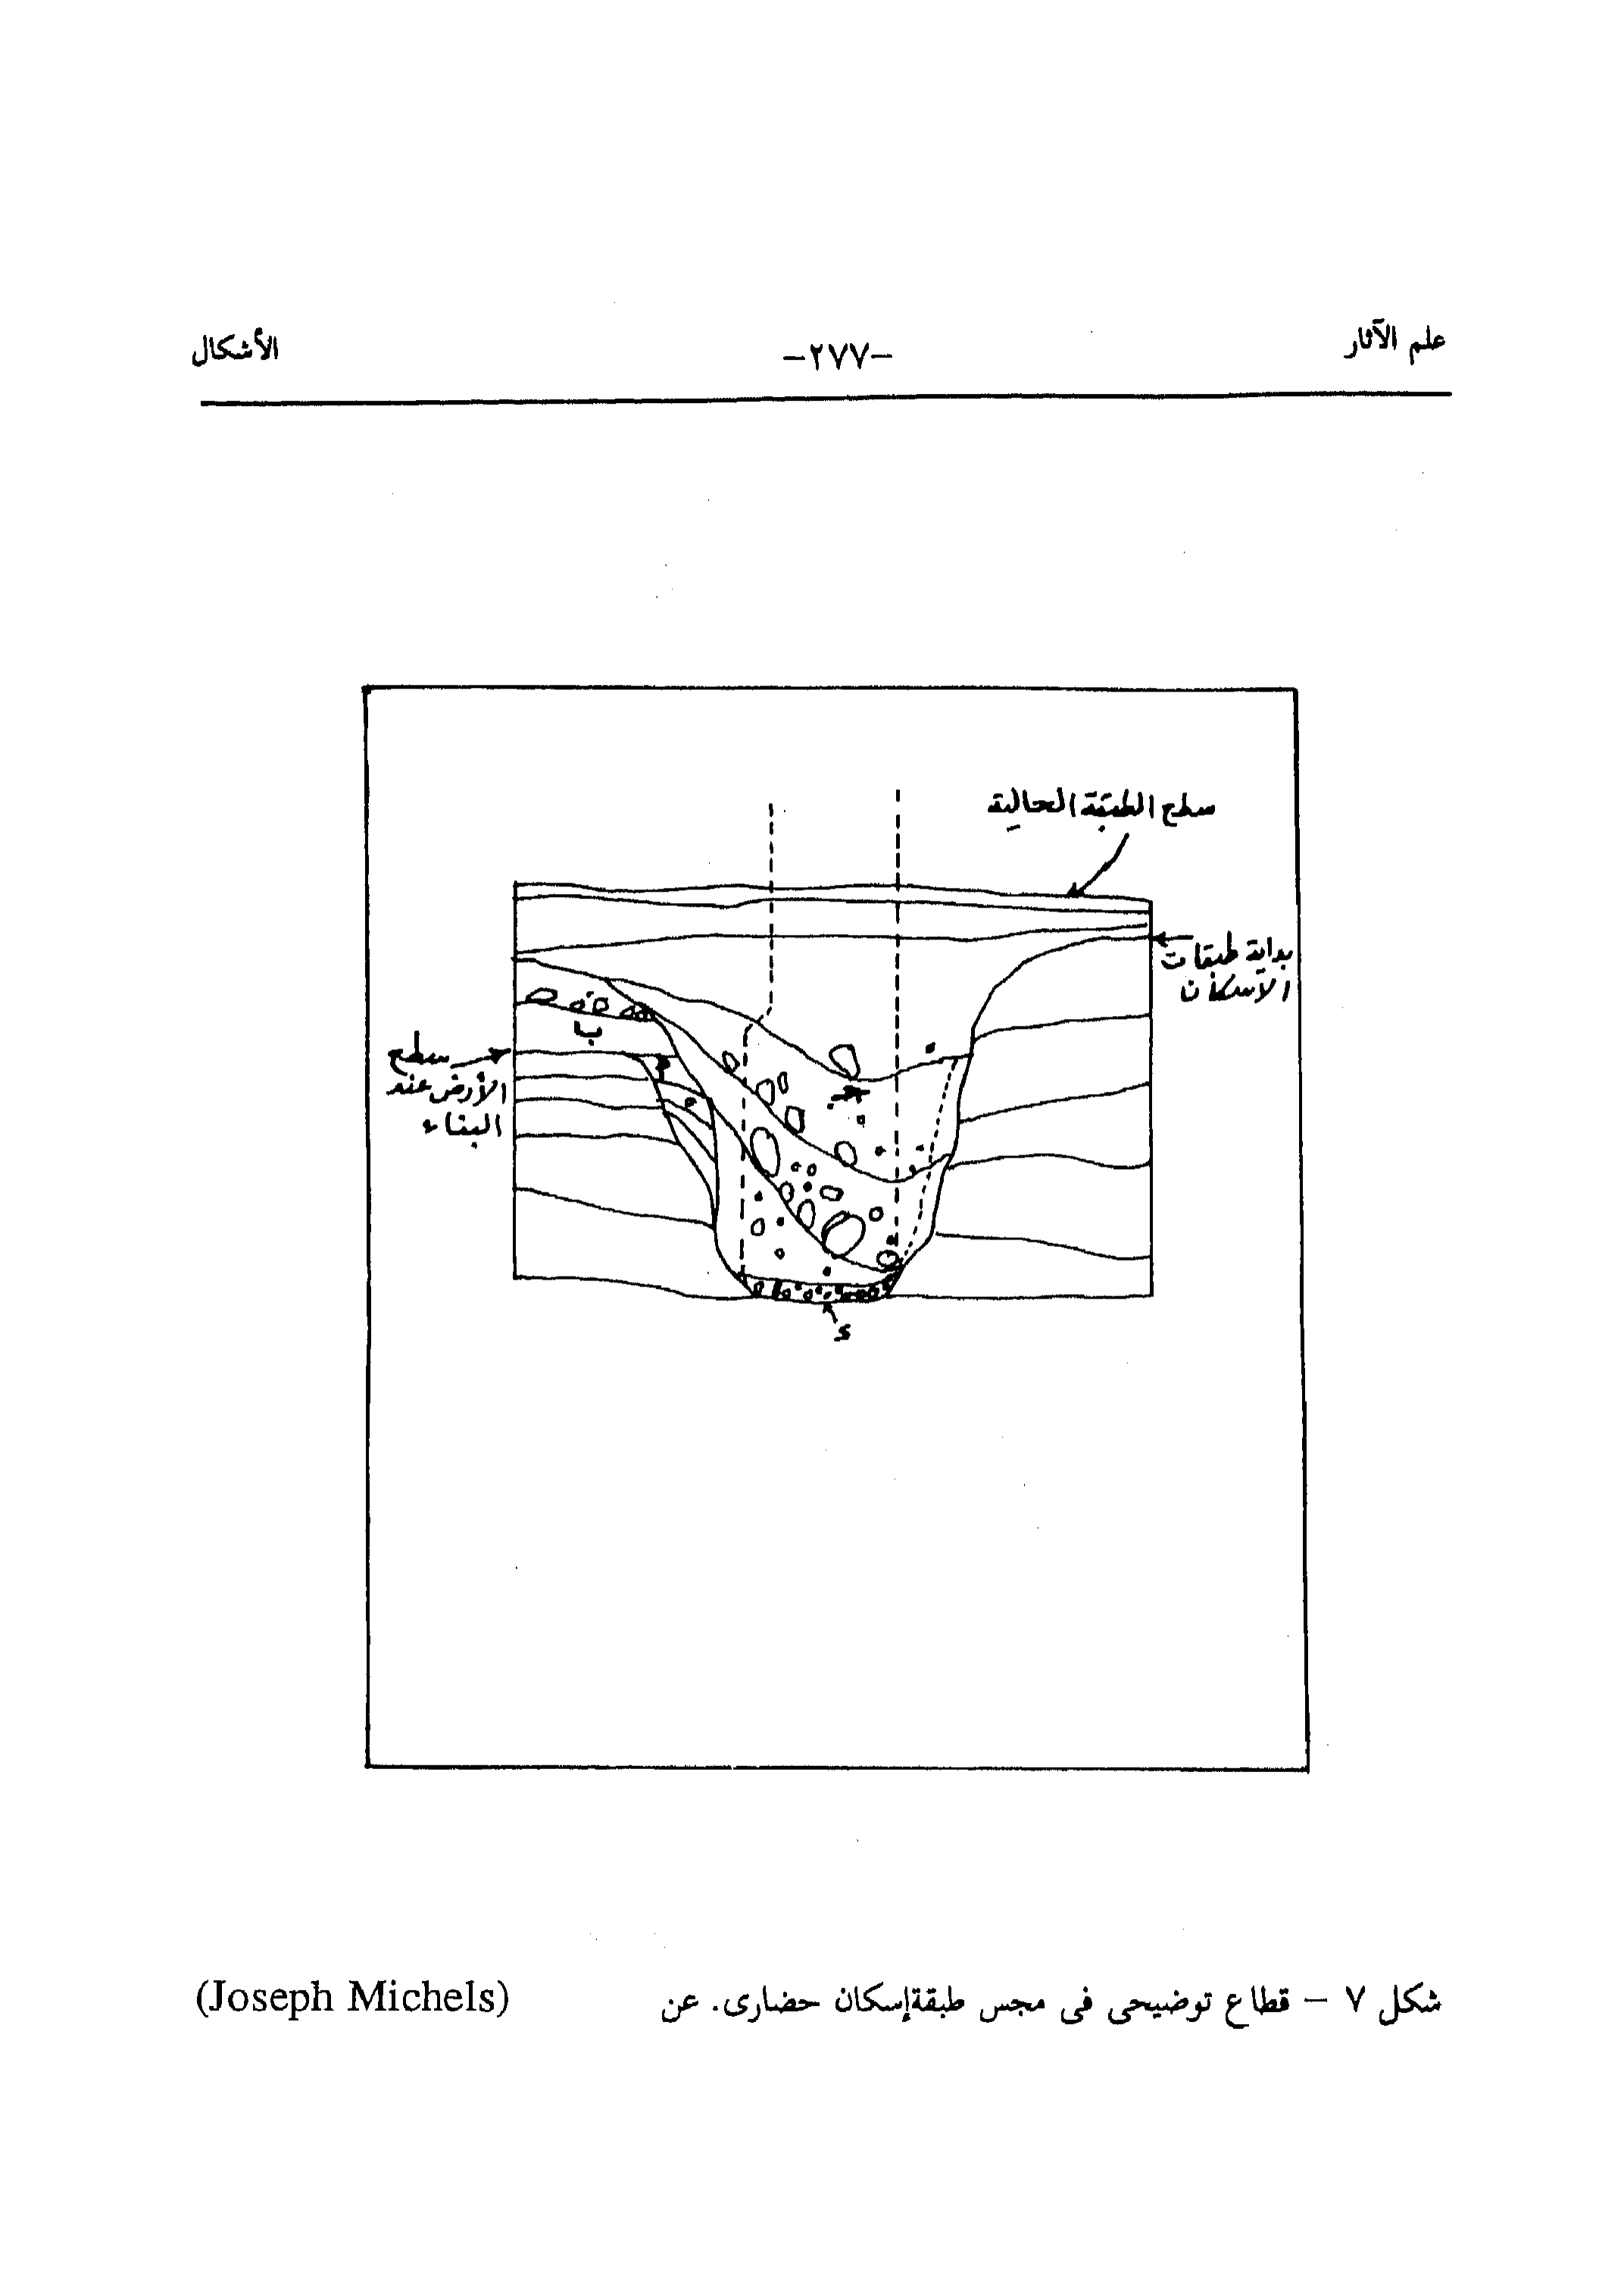 علم الآثار
-٢٧٧-
الأشكال
سطح الطبقة الحالية
بداية طبقات
الآسكان
ب
سطح
الأرض عند
البناء
م
م
د
شكل ٧ – قطاع توضيحى فى مجس طبقةإسكان حضارى. عن (Joseph Michels)